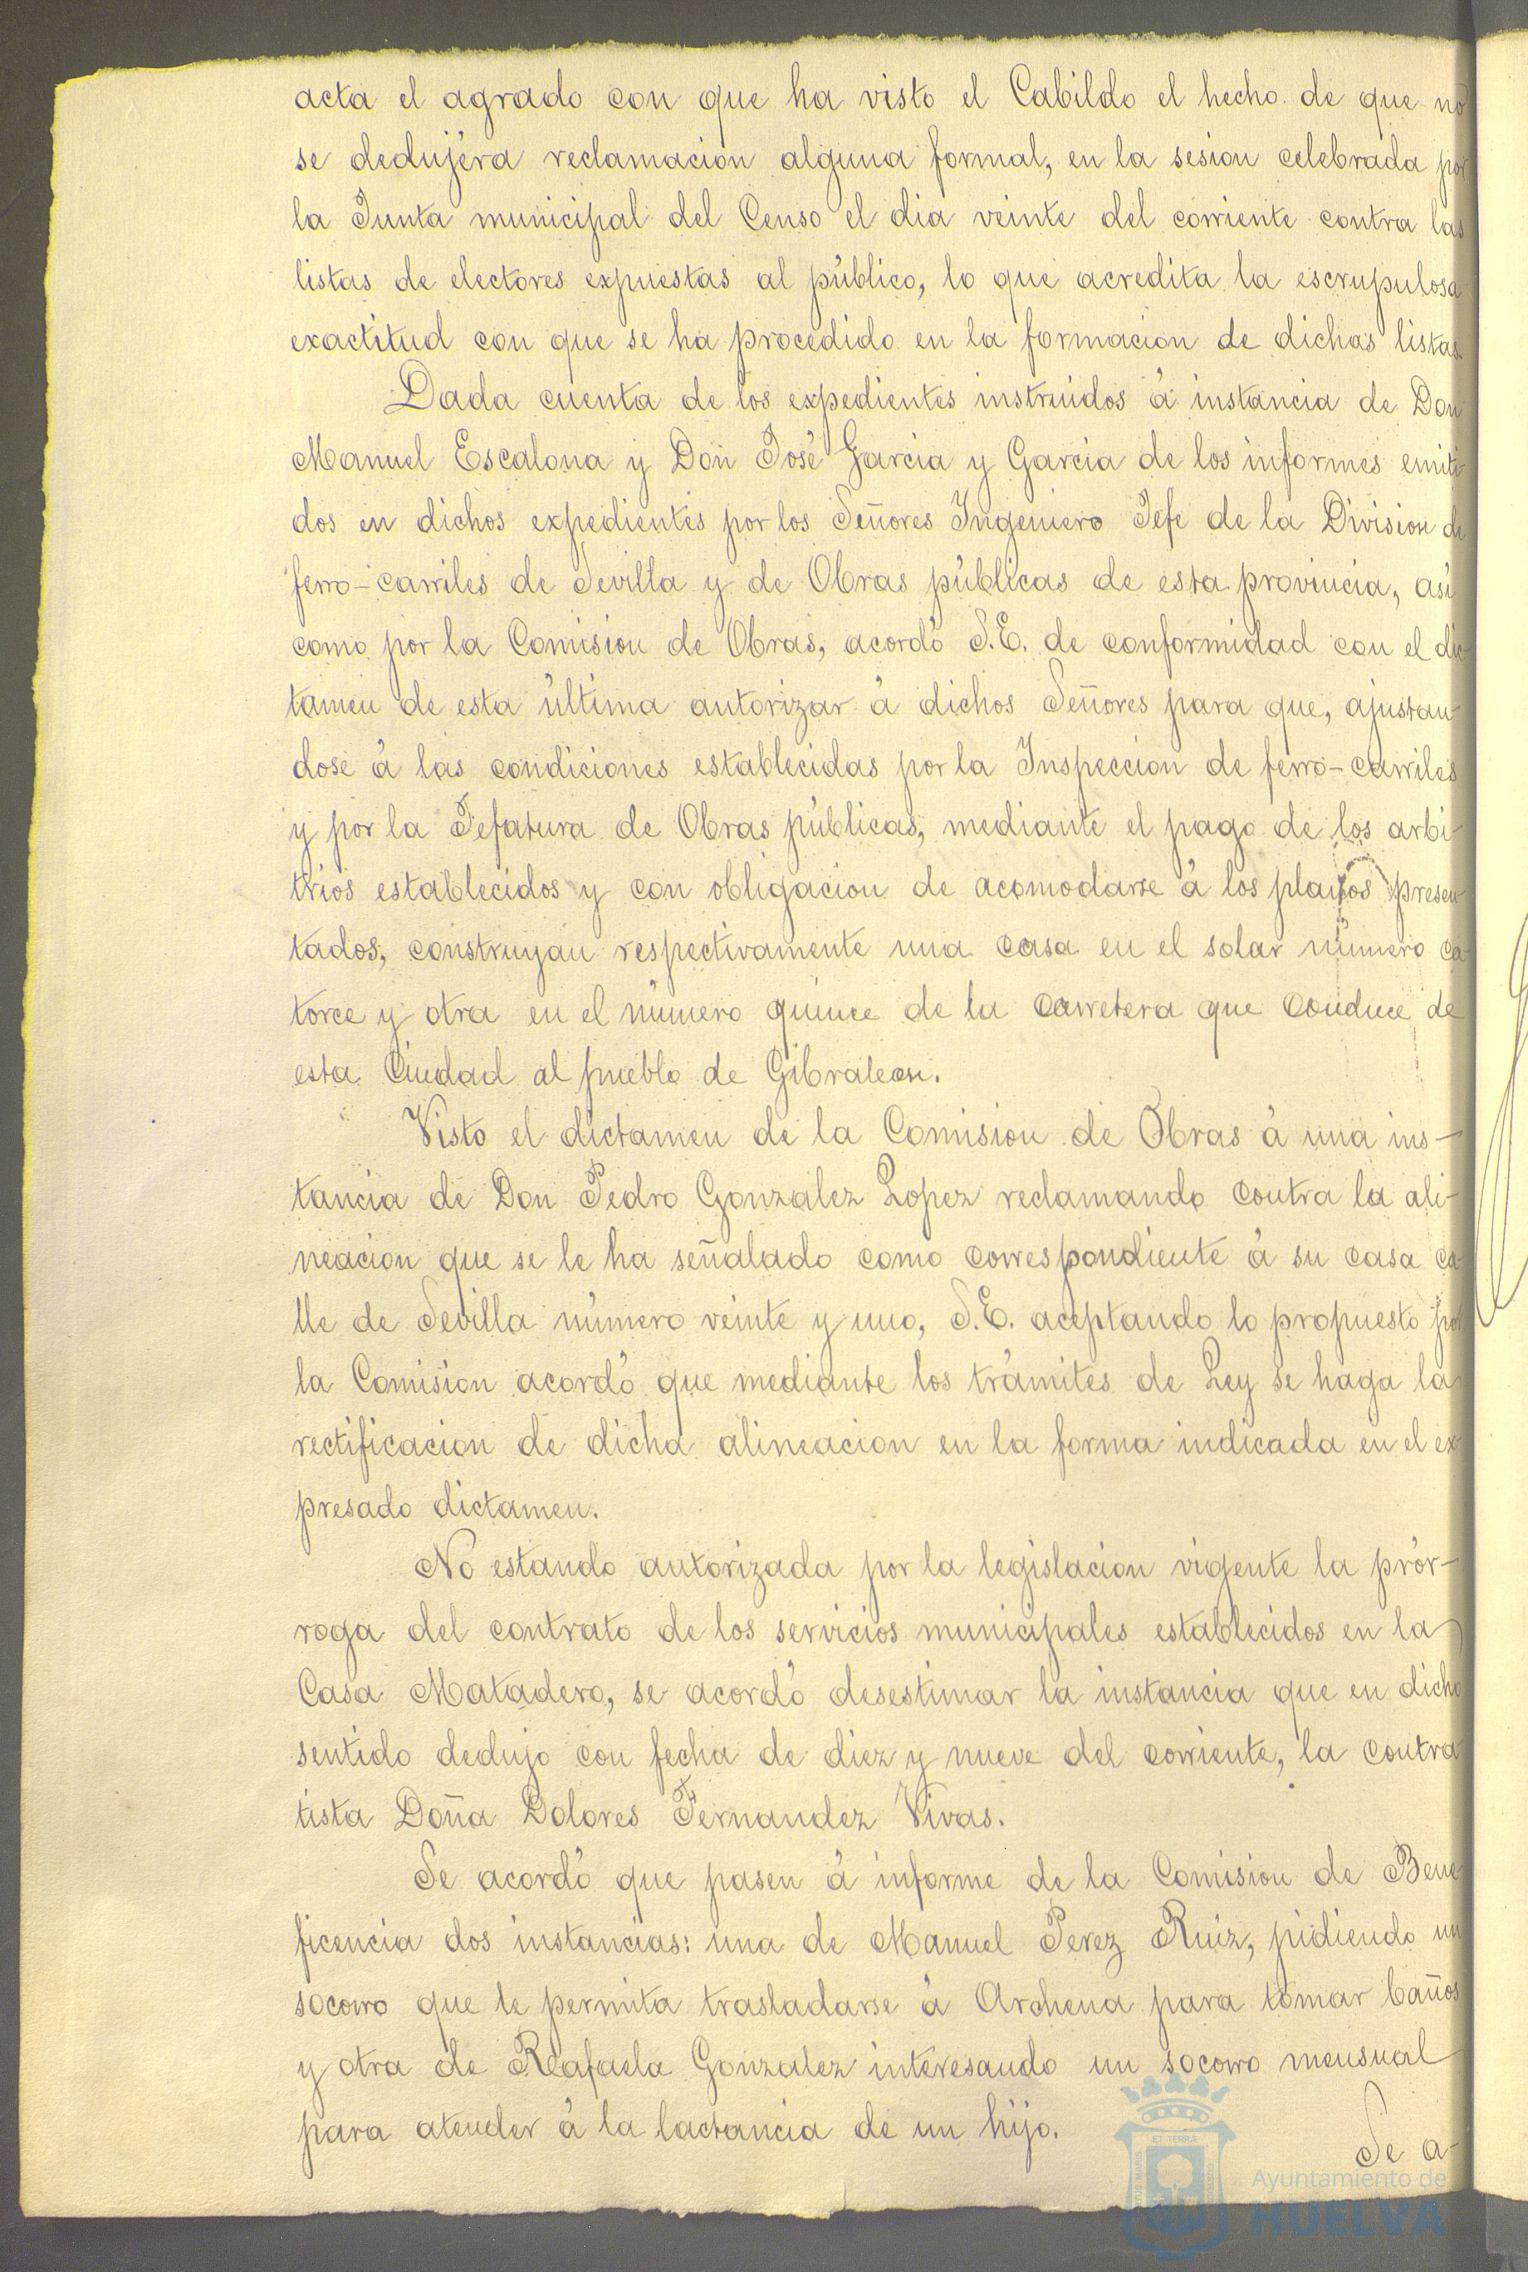 acta el agrado con que ha visto el Cabildo el hecho de que no
se dedujera reclamacion alguna formal, en la sesion celebrada por
la Junta municipal del Censo el dia veinte del corriente contra las
listas de electores expuestas al público, lo que acredita la escrupulosa
exactitud con que se ha procedido en la formacion de dichas listas.
Dada cuenta de los expedientes instruidos á instancia de Don
Manuel Escalona y Don José Garcia y Garcia de los informes emiti-
dos en dichos expedientes por los Señores Ingeniero Jefe de la Division de
ferro-carriles de Sevilla y de Obras públicas de esta provincia, asi
como por la Comision de Obras, acordó S.E. de conformidad con el dic-
tamen de esta última autorizar á dichos Señores para que, ajustan-
dose á las condiciones establecidas por la Inspeccion de ferro-carriles
y por la Jefatura de Obras públicas, mediante el pago de los arbi-
trios establecidos y con obligacion de acomodarse á los planos presen-
tados, construyan respectivamente una casa en el solar número ca-
torce y otra en el número quince de la carretera que conduce de
esta Ciudad al pueblo de Gibraleon.
Visto el dictamen de la Comision de Obras á una ins-
tancia de Don Pedro Gonzalez Lopez reclamando contra la ali-
neacion que se le ha señalado como correspondiente á su casa ca-
lle de Sevilla número veinte y uno, S.E. aceptando lo propuesto por
la Comision acordó que mediante los trámites de Ley se haga la
rectificacion de dicha alineacion en la forma indicada en el ex-
presado dictamen.
No estando autorizada por la legislacion vigente la prór-
roga del contrato de los servicios municipales establecidos en la
Casa Matadero, se acordó desestimar la instancia que en dicho
sentido dedujo con fecha de diez y nueve del corriente, la contra-
tista Doña Dolores Fernandez Vivas.
Se acordó que pasen á informe de la Comision de Bene-
ficencia dos instancias: una de Manuel Perez Ruiz, pidiendo un
socorro que le permita trasladarse á Archena para tomar baños
y otra de Reafaela Gonzalez interesando un socorro mensual
para atender á la lactancia de un hijo.
Se a-
Ayuntamiento de
HUELVA